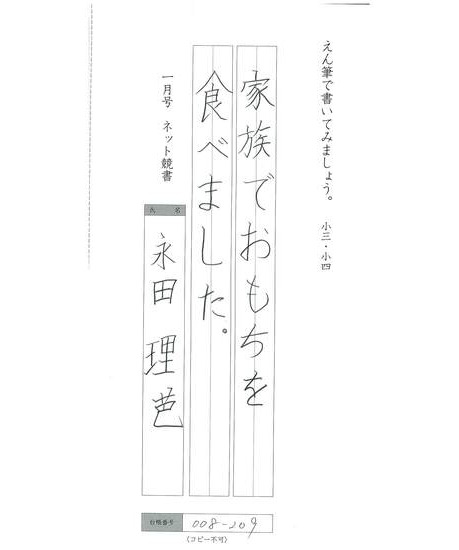 えん筆で書いてみましょう。 小三・小四
家族でおもちを
食べました。
一月号 ネット競書
氏 名
永田 理芭
台帳番号
008-209
(コピー不可)